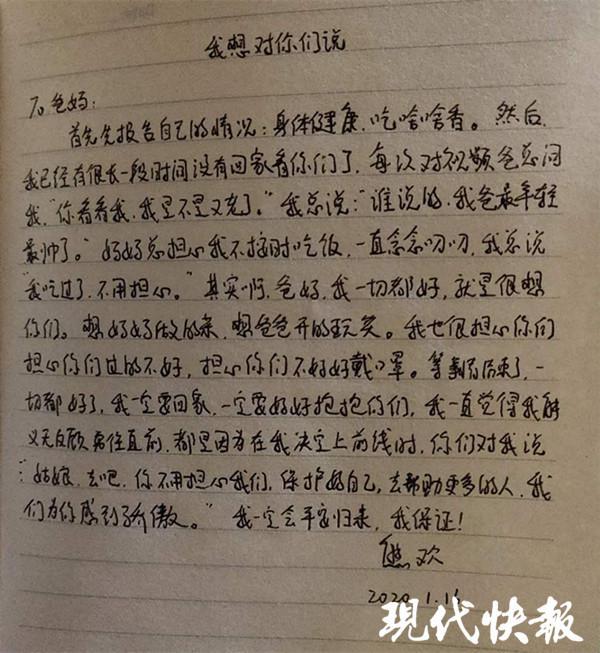 我想对你们说
To 爸妈:
首先先报告自己的情况:身体健康,吃啥啥香。然后,
我已经有很长一段时间没有回家看你们了,每次对视频爸总问
我,“你看看我,我是不是又老了。”我总说:“谁说的,我爸最年轻
最帅了。”妈妈总担心我不按时吃饭,一直念念叨叨,我总说
“我吃过了,不用担心。”其实啊,爸妈,我一切都好,就是很想
你们。想妈妈做的菜,想爸爸开的玩笑。我也很担心你们
担心你们过的不好,担心你们不好好戴口罩。等
一
切都好了,我一定要回家,一定要好好抱抱你们,我一直觉得我能
义无反顾勇往直前,都是因为在我决定上前线时,你们对我说
“姑娘,去吧,你不用担心我们,保护好自己,去帮助更多的人,我
们为你感到骄傲。”我一定会平安归来,我保证!
熊欢
2020.1.16
现代快报